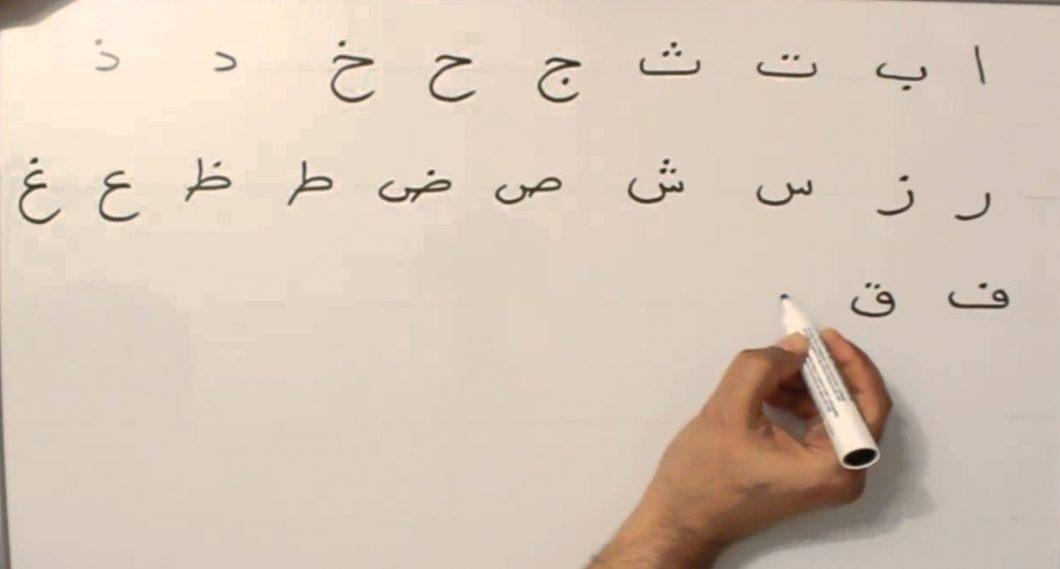 ا ب ت ث ج ح خ د ذ
ر ز س ش ص ض ط ظ ع غ
ف ق